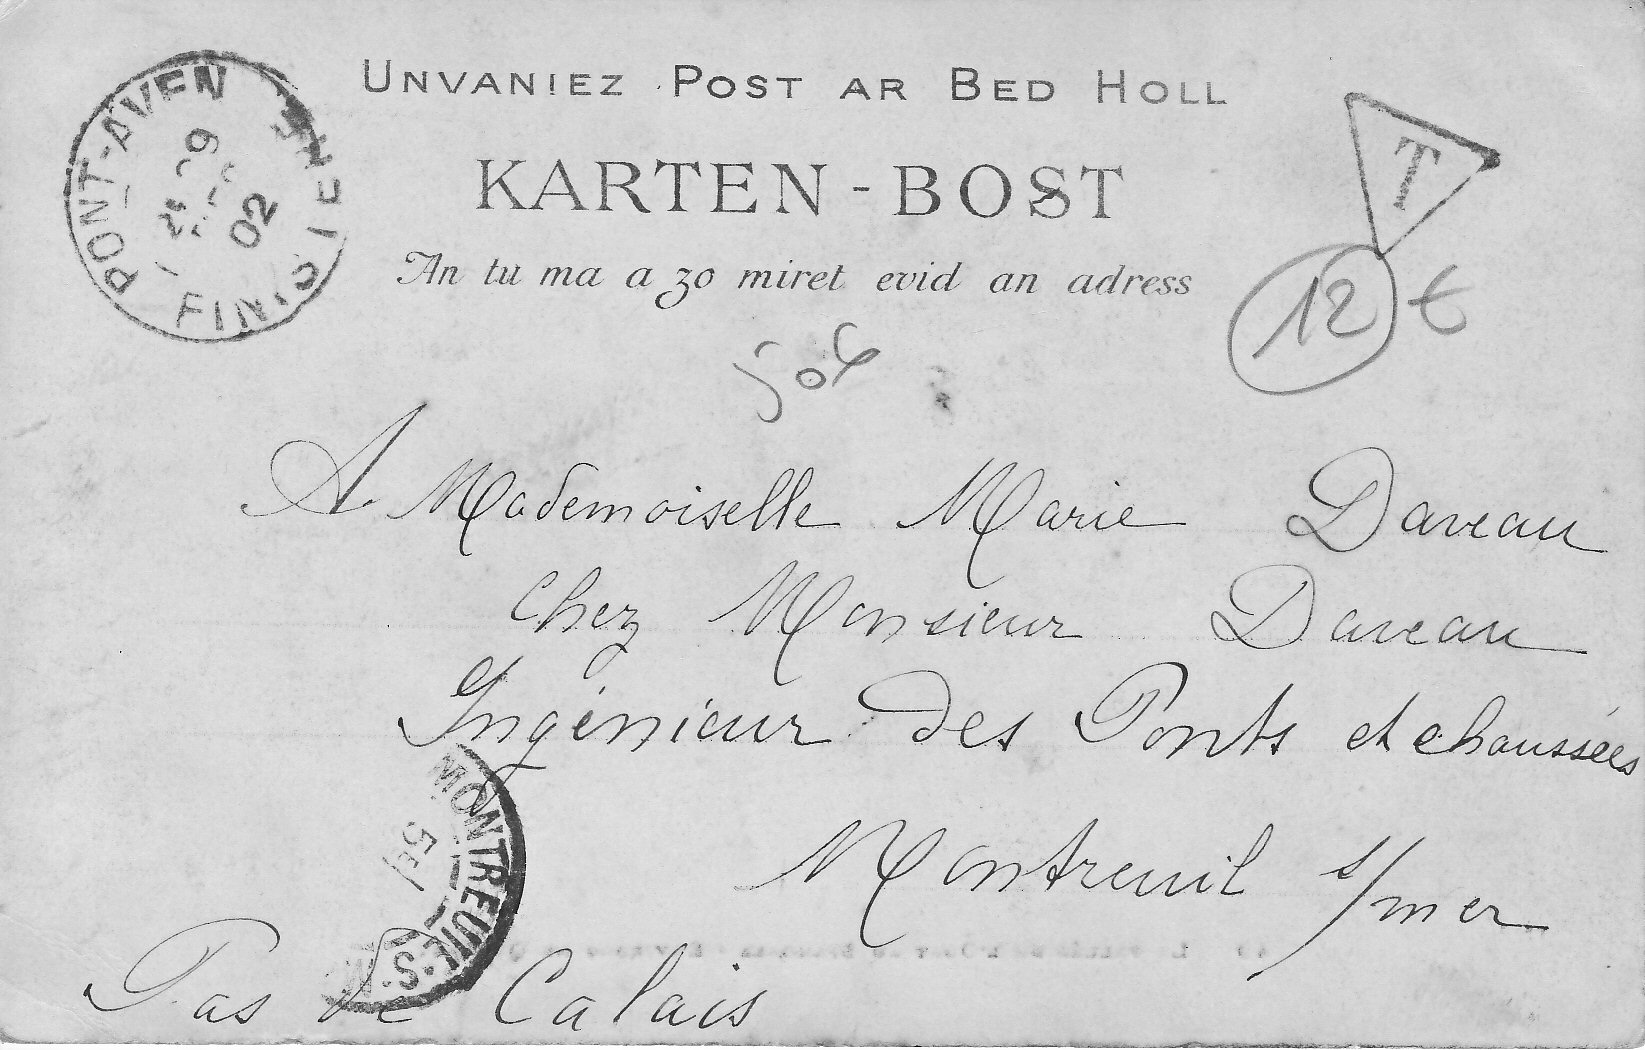 UNVANIEZ POST AR BED HOLL
KARTEN-BOST
An tu ma a zo miret evid an adress
PONT-AVEN
02
FINISTÈRE
T
12
A Mademoiselle Marie Daveau
Chez Monsieur Daveau
Ingénieur des Ponts et chaussées
Montreuil s/mer
Pas de Calais
MONTREUIL-S-M